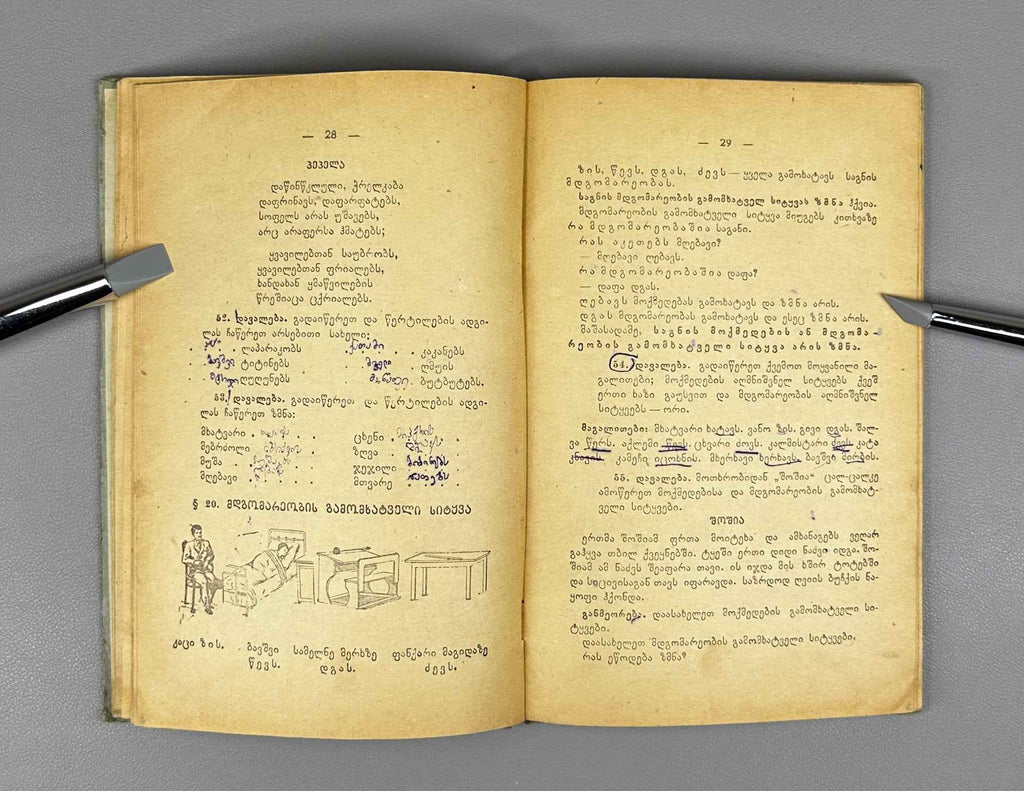 — 28 —
პეპელა
დაწინწკლული, ჭრელკაბა
დაფრინავს, დაფარფატებს,
სოფელს არას უშავებს,
არც არაფერსა ჰმატებს;
ყვავილებთან საუბრობს,
ყვავილებთან ფრიალებს,
ხანდახან ყმაწვილების
წრეშიაცა ცქრიალებს.
52. დავალება. გადაიწერეთ და წერტილების ადგი-
ლას ჩაწერეთ არსებითი სახელი:
. . . ლაპარაკობს ქათამი . . კაკანებს
ბავშვი ტიტინებს მგელი . . ღმუის
. . . ღუღუნებს . . . ბუტბუტებს.
53. დავალება. გადაიწერეთ და წერტილების ადგი-
ლას ჩაწერეთ ზმნა:
მხატვარი ხატავს . ცხენი .
მებრძოლი . ზღვა .
მუშა . ჯეჯილი ბიბინებს
მღებავი . მთვარე . ანათებს
§ 20. მდგომარეობის გამომხატველი სიტყვა
კაცი ზის. ბავშვი წევს. სამელნე მერხზე დგას. ფანქარი მაგიდაზე ძევს.
— 29 —
ზის, წევს, დგას, ძევს — ყველა გამოხატავს საგნის
მდგომარეობას.
საგნის მდგომარეობის გამომხატველ სიტყვას ზმნა ჰქვია.
მდგომარეობის გამომხატველი სიტყვა მიუგებს კითხვაზე
რა მდგომარეობაშია საგანი.
რას აკეთებს მღებავი?
— მღებავი ღებავს.
რა მდგომარეობაშია დაფა?
— დაფა დგას.
ღებავს მოქმედებას გამოხატავს და ზმნა არის.
დგას მდგომარეობას გამოხატავს და ესეც ზმნა არის.
მაშასადამე, საგნის მოქმედების ან მდგომა-
რეობის გამომხატველი სიტყვა არის ზმნა.
54. დავალება. გადაიწერეთ ქვემოთ მოყვანილი მა-
გალითები; მოქმედების აღმნიშვნელ სიტყვებს ქვეშ
ერთი ხაზი გაუსვით და მდგომარეობის აღმნიშვნელ
სიტყვებს — ორი.
მაგალითები: მხატვარი ხატავს. ვანო ზის. გივი დგას. შალ-
ვა წერს. აქლემი წევს. ცხვარი ძოვს. კალმისტარი ძევს კატა
კნავის კამეჩი იცოხნის. მხერხავი ხერხავს. ბავშვი მირბის.
55. დავალება. მოთხრობიდან „შოშია“ ცალ-ცალკე
ამოწერეთ მოქმედებისა და მდგომარეობის გამომხატ-
ველი სიტყვები.
შოშია
ერთმა შოშიამ ფრთა მოიტეხა და ამხანაგებს ვეღარ
გაჰყვა თბილ ქვეყნებში. ტყეში ერთი დიდი ნაძვი იდგა. შო-
შიამ ამ ნაძვს შეაფარა თავი. ის იჯდა მის ხშირ ტოტებში
და სიცივისაგან თავს იფარავდა. საზრდოდ ღვიის ბუჩქის ნა-
ყოფი ჰქონდა.
განმეორება. დაასახელეთ მოქმედების გამომხატველი სი-
ტყვები.
დაასახელეთ მდგომარეობის გამომხატველი სიტყვები.
რას ეწოდება ზმნა?